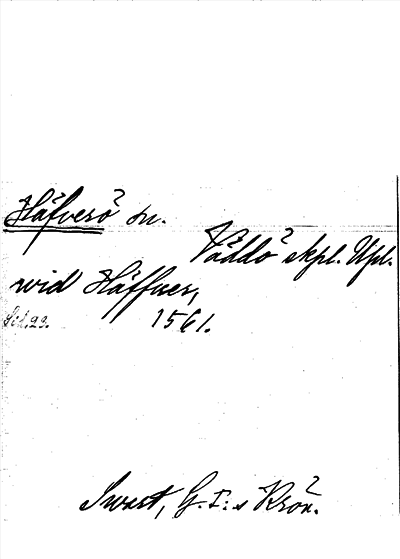 Häfverö sn.
Väddö skpl. Upl.
wid Häffuer,
Sid. 23. 1561.
Swart, G. I:s Krön.